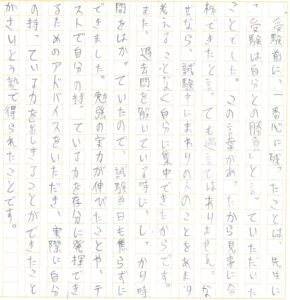 受験前に、一番心に残ったことは、先生に
「受験は自分との勝負」と言っていただいた
ことでした。この言葉があったから見事に合
格できたと言っても過言ではありません。な
ぜなら、試験中にまわりの人のことをあまり
考えることなく自分に集中できたからです。
また、過去問を解いている時に、しっかり時
間をはかっていたので、試験当日も焦らずに
できました。勉強の実力が伸びたことや、テ
ストで自分の持っている力を存分に発揮でき
るためのアドバイスをいただき、実際に自分
の持っている力を出しきることができたこと
がさいとう塾で得られたことです。